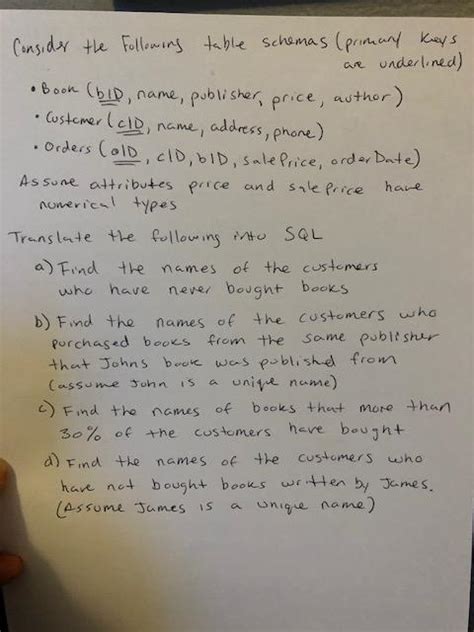 Consider the Following table schemas (primary keys
are underlined)
• Book (bID, name, publisher, price, author)
• Customer (cID, name, address, phone)
• Orders (oID, cID, bID, salePrice, orderDate)
Assume attributes price and salePrice have
numerical types
Translate the following into SQL
a) Find the names of the customers
who have never bought books
b) Find the names of the customers who
purchased books from the same publisher
that Johns book was published from
(assume John is a unique name)
c) Find the names of books that more than
30% of the customers have bought
d) Find the names of the customers who
have not bought books written by James.
(Assume James is a unique name)